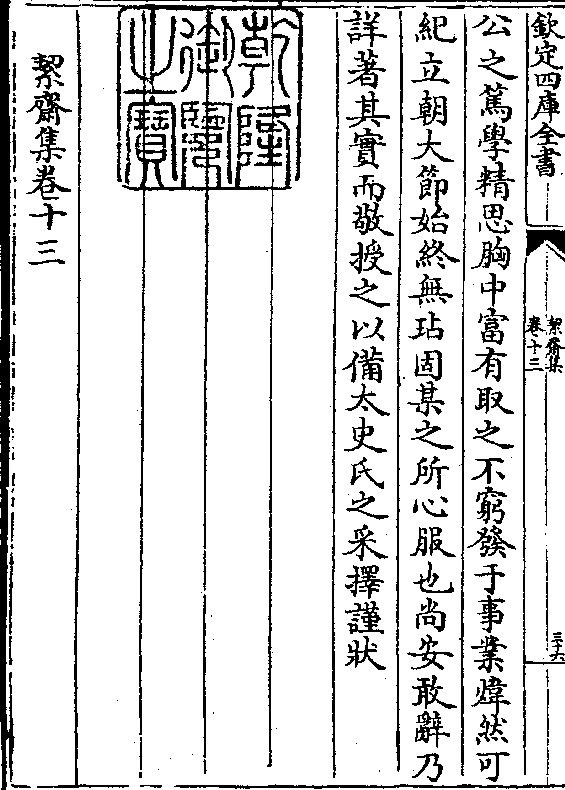 欽定四庫全書
絜齋集
卷十三
三十六
公之篤學精思胸中富有取之不窮發于事業煒然可
紀立朝大節始終無玷固某之所心服也尚安敢辭乃
詳著其實而敬授之以備太史氏之采擇謹狀
乾隆
御覽
之寶
絜齋集卷十三